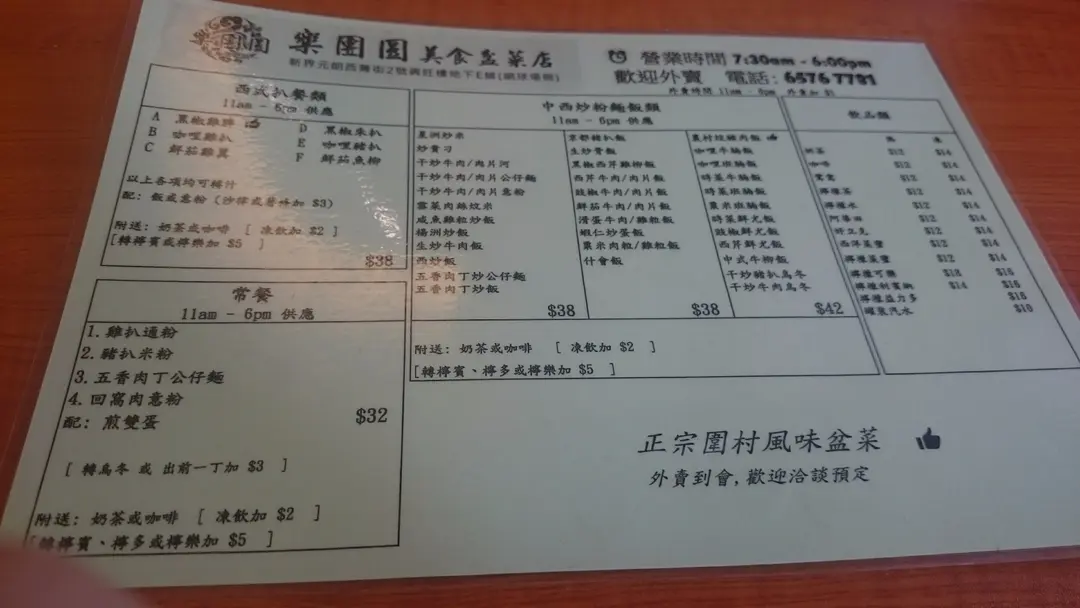 樂團圓 美食盆菜店
營業時間 7:30am - 6:00pm
歡迎外賣 電話: 6576 7791
外賣時間 11am - 6pm 外賣加 $1
西式扒餐類
11am - 6pm 供應
A 黑椒雞髀
B 咖哩雞扒
C 鮮茄雞翼
D 黑椒朱扒
E 咖哩豬扒
F 鮮茄魚柳
以上各項均可轉什
配: 飯或意粉 (沙律或薯條加 $3)
附送: 奶茶或咖啡 [ 凍飲加 $2 ]
[轉檸賓或檸樂加 $5 ]
$38
常餐
11am - 6pm 供應
1. 雞扒通粉
2. 豬扒米粉
3. 五香肉丁公仔麵
4. 回窩肉意粉
配: 煎雙蛋
$32
[ 轉烏冬 或 出前一丁加 $3 ]
附送: 奶茶或咖啡 [ 凍飲加 $2 ]
[轉檸賓、檸多或檸樂加 $5 ]
中西炒粉麵飯類
11am - 6pm 供應
星洲炒米
炒貴刁
干炒牛肉/肉片河
干炒牛肉/肉片公仔麵
干炒牛肉/肉片意粉
雪菜肉絲炆米
咸魚雞粒炒飯
楊洲炒飯
生炒牛肉飯
西炒飯
五香肉丁炒公仔麵
五香肉丁炒飯
$38
京都豬扒飯
生炒骨飯
黑椒西芹雞柳飯
西芹牛肉/肉片飯
豉椒牛肉/肉片飯
鮮茄牛肉/肉片飯
滑蛋牛肉/雞粒飯
蝦仁炒蛋飯
粟米肉粒/雞粒飯
什會飯
$38
農村炆豬肉飯
咖哩牛腩飯
咖哩斑腩飯
時菜牛腩飯
時菜斑腩飯
粟米斑腩飯
時菜鮮尤飯
豉椒鮮尤飯
西芹鮮尤飯
中式牛柳飯
干炒豬扒烏冬
干炒牛肉烏冬
$42
附送: 奶茶或咖啡 [ 凍飲加 $2 ]
[轉檸賓、檸多或檸樂加 $5 ]
飲品類
熱 凍
奶茶 $12 $14
咖啡 $12 $14
鴛鴦 $12 $14
檸檬茶 $12 $14
檸檬水 $12 $14
阿華田 $12 $14
好立克 $12 $14
西洋菜蜜 $12 $14
檸檬菜蜜 $12 $14
檸檬可樂 $16
檸檬利賓納 $14 $16
檸檬益力多 $16
罐裝汽水
正宗圍村風味盆菜
外賣到會, 歡迎洽談預定